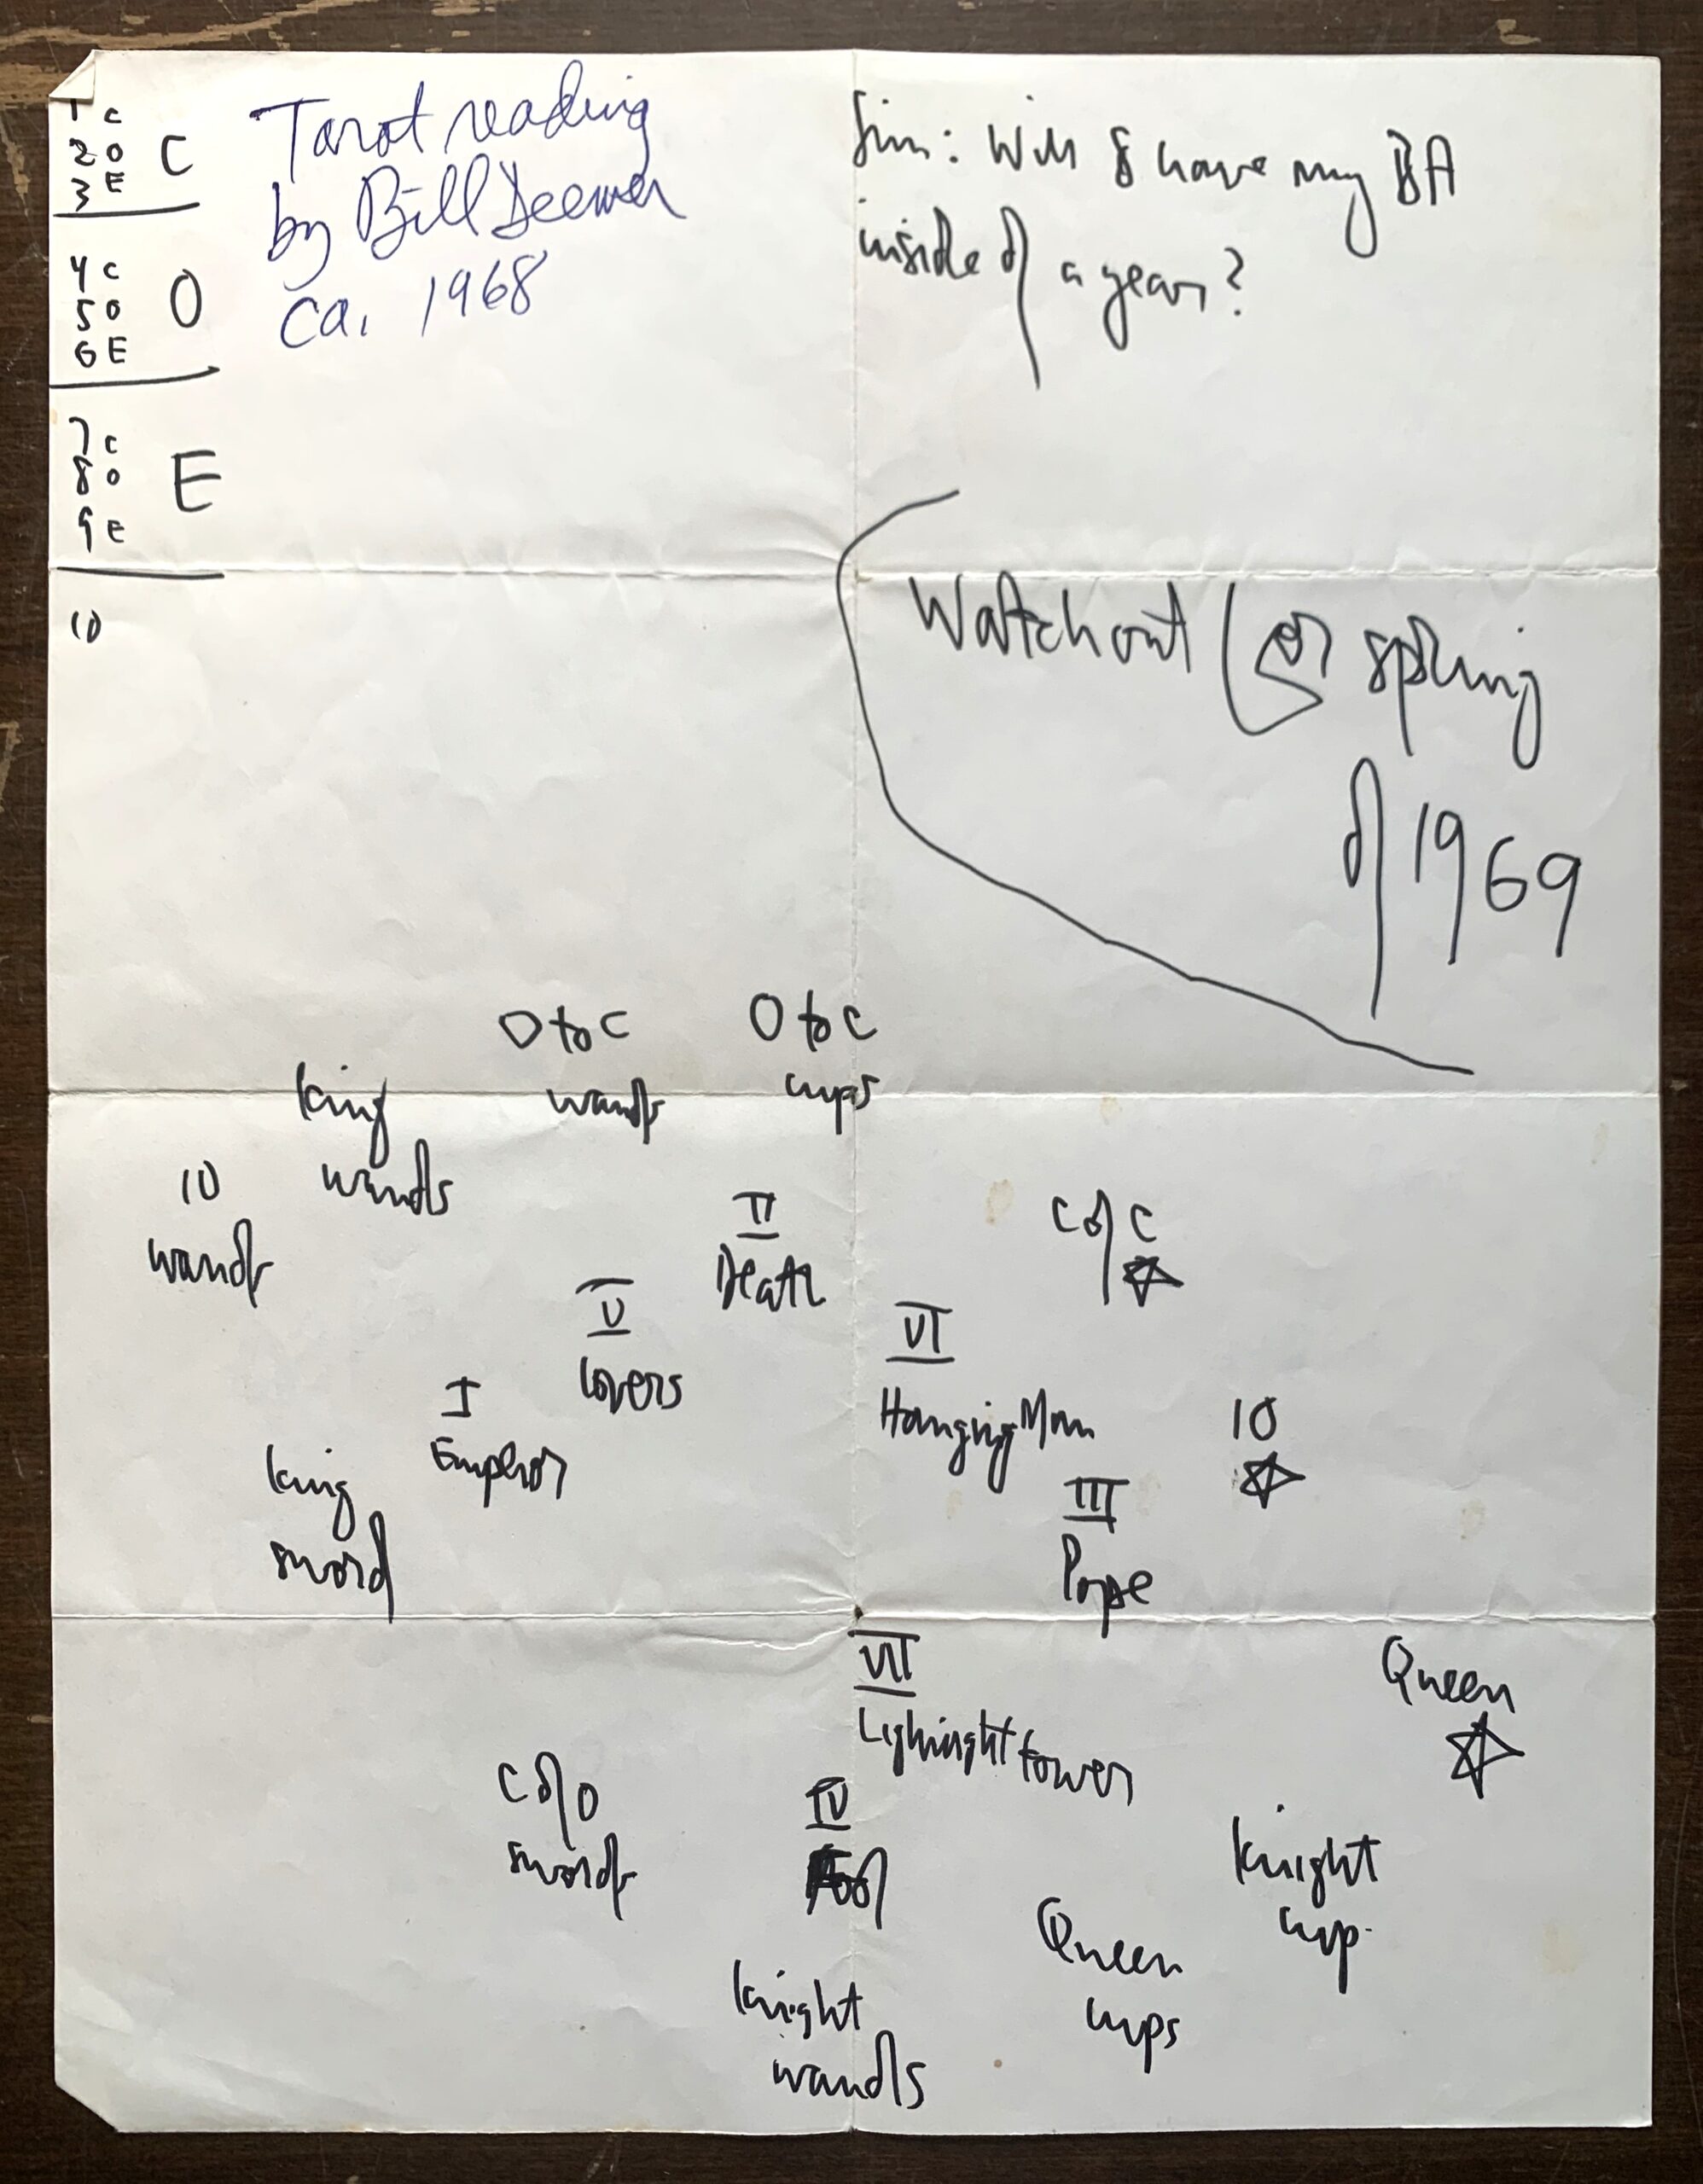 1 C
2 O C
3 E
4 C
5 O O
6 E
7 C
8 O E
9 E
10
Tarot reading
by Bill Deemer
ca. 1968
Jim: Will I have my BA
inside of a year?
Watch out for spring
of 1969
O to C
wands
O to C
cups
king
wands
10
wands
II
Death
C of C
V
Lovers
VI
Hanging Man
I
Emperor
10
king
sword
III
Pope
VII
Lighnight tower
Queen
C of O
swords
IV
Fool
knight
cup
Queen
cups
knight
wands